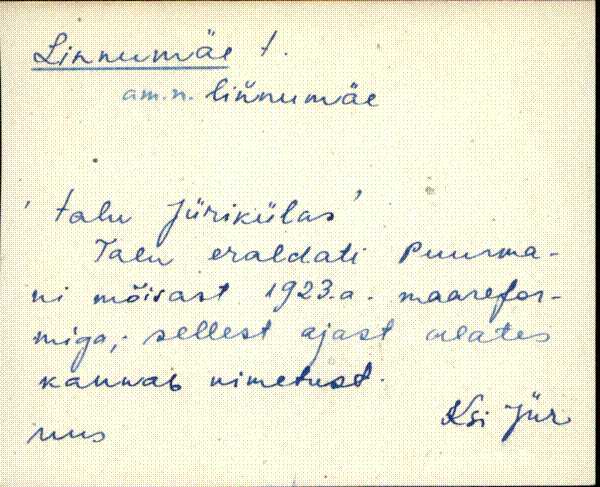 Linnumäe t.
am.n. liñnumäe
'talu Jürikülas'
Talu eraldati Puurma-
ni mõisast 1923.a. maarefor-
miga, sellest ajast alates
kannab nimetust.
Ksi Jür